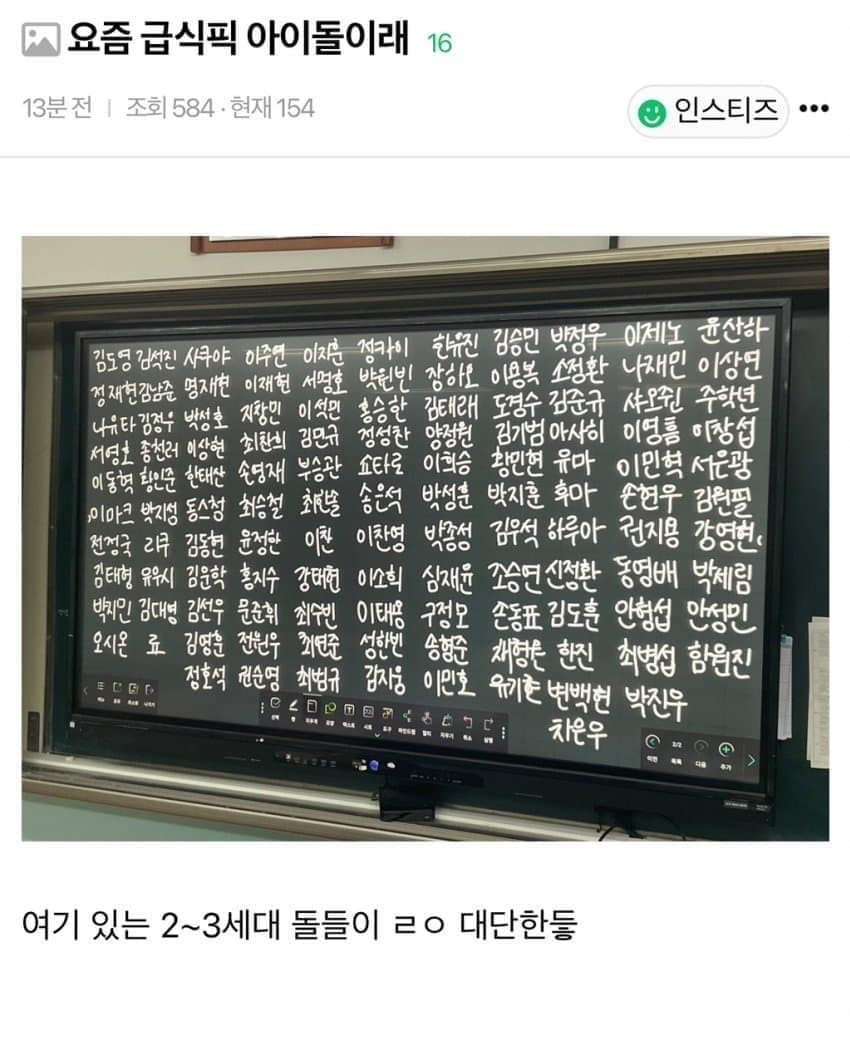 요즘 급식픽 아이돌이래 16
13분 전 | 조회 584 · 현재 154
인스티즈
김도영 김석진 사쿠야 이주연 이지훈 정카이 한유진 김승민 박정우 이제노 윤산하
정재현 김남준 명재현 이재현 서명호 박원빈 장하오 이용복 소정환 나재민 이상연
나유타 김정우 박성호 지창민 이석민 홍승한 김태래 도경수 김준규 샤오쥔 주학년
서영호 종천러 이상현 최찬희 김민규 정성찬 양정원 김기범 아사히 이영흠 이창섭
이동혁 황인준 한태산 손영재 부승관 쇼타로 이희승 황민현 유마 이민혁 서은광
이마크 박지성 동스청 최승철 최한솔 송은석 박성훈 박지훈 후마 손현우 김원필
전정국 리쿠 김동현 윤정한 이찬 이찬영 박종성 김우석 하루아 권지용 강영현
김태형 유우시 김운학 홍지수 강태현 이소희 심재윤 조승연 신정환 동영배 박제림
박지민 김대영 김선우 문준휘 최수빈 이태용 구정모 손동표 김도훈 안형섭 안성민
오시온 료 김영훈 전원우 최연준 성한빈 송형준 한진 최병섭 함원진
정호석 권순영 최범규 김지웅 이민호 유기현 변백현 박진우
차은우
2/2
이전 목록 다음 추가
여기 있는 2~3세대 돌들이 ㄹㅇ 대단한듷